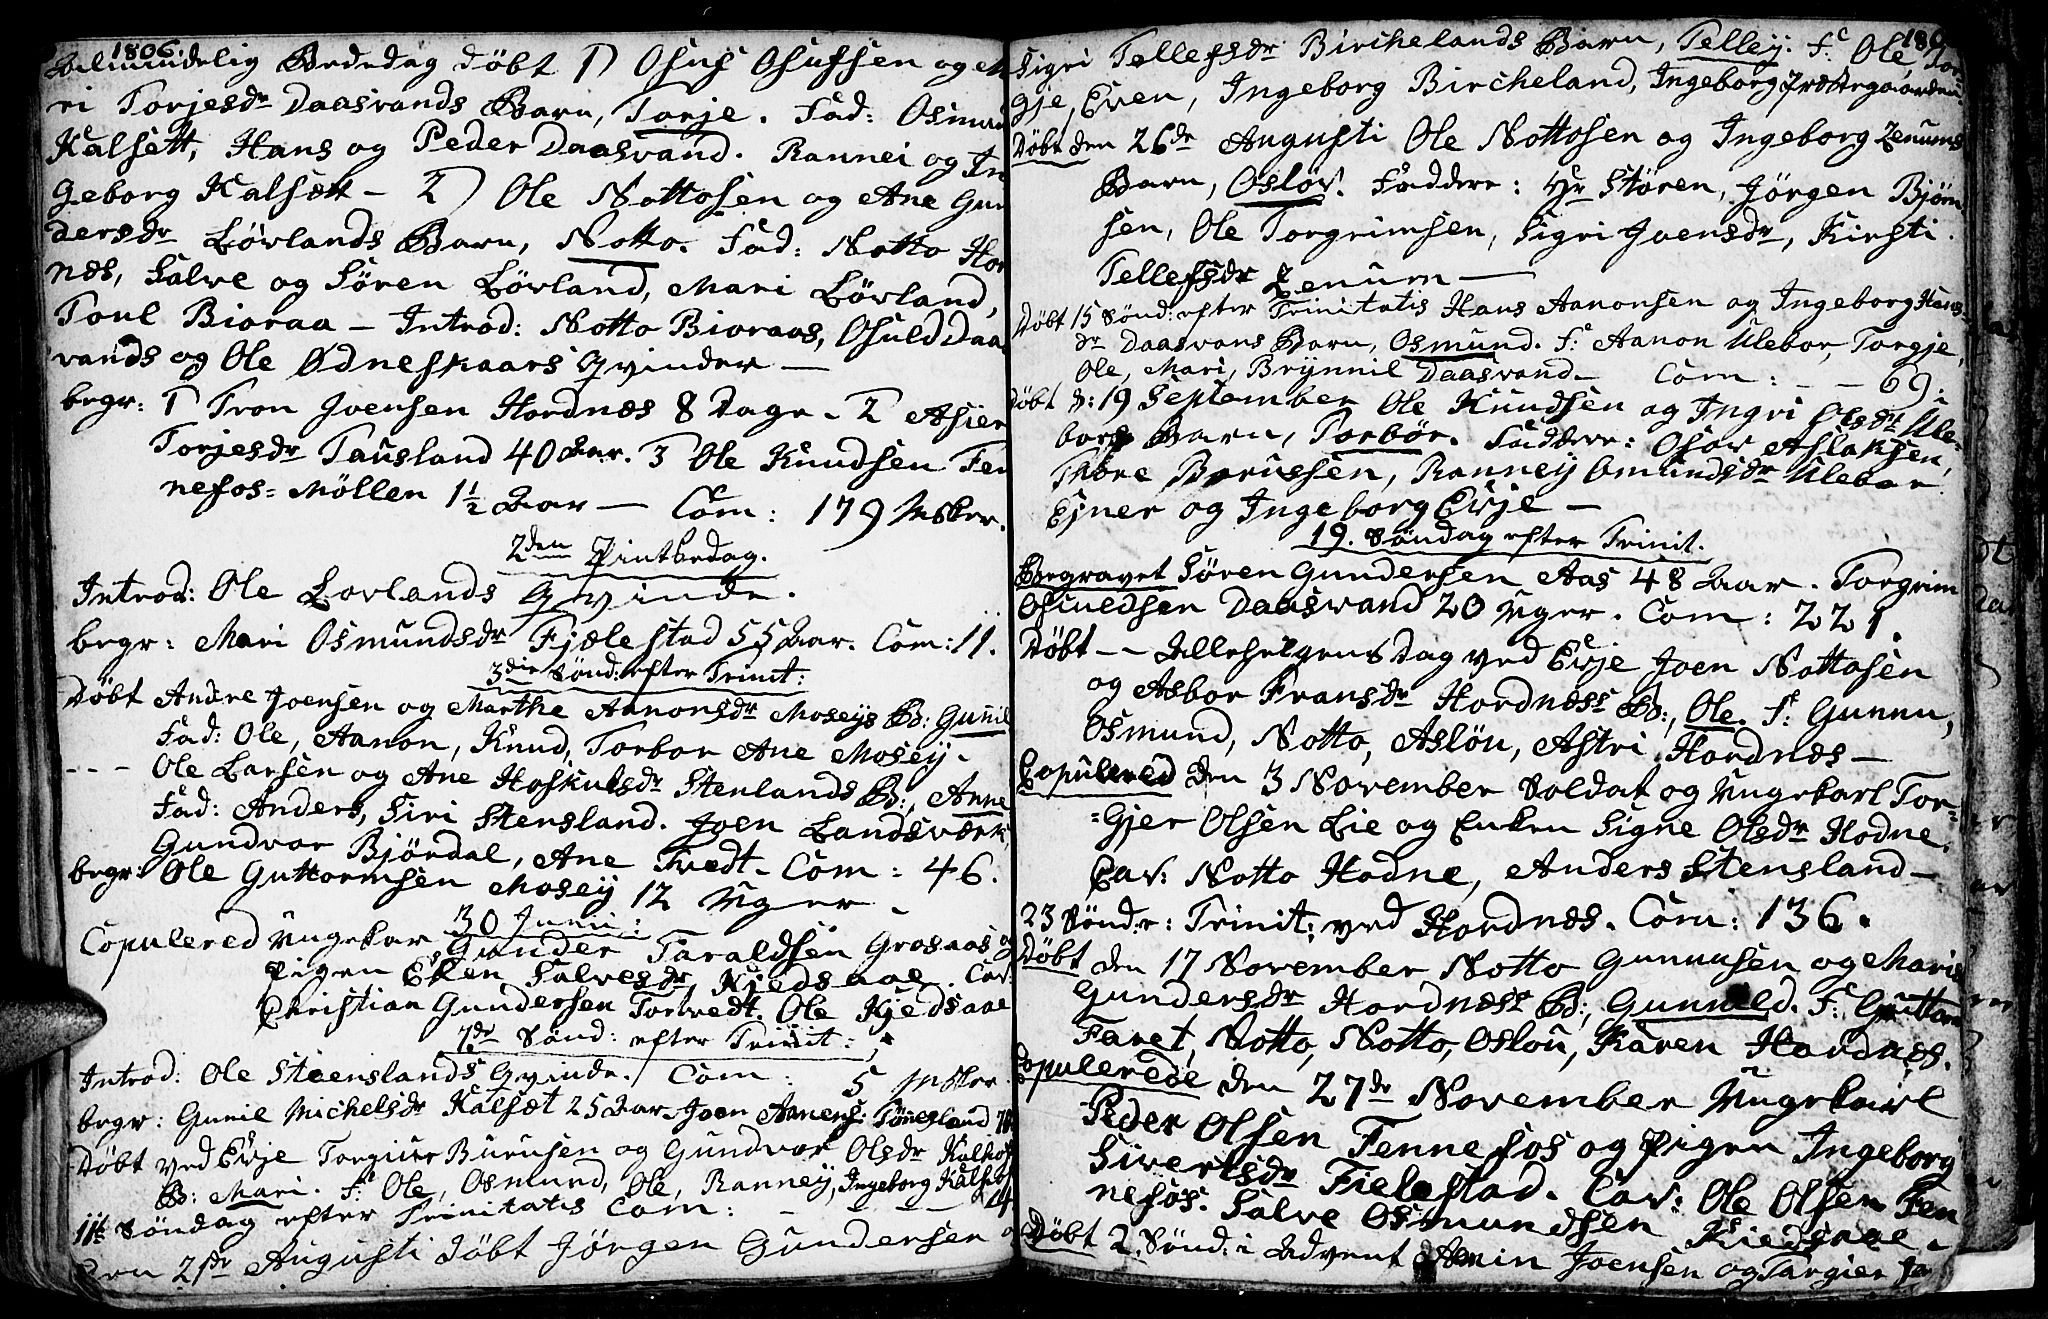 1806.
Almindelig Bededag döbt 1) Osus Osufsen og
ri Torjesdr Daasvands Barn, Torje. Fad: Osmund
Kalsett, Hans og Peder Daasvand. Rannei og In
geborg Kalsett – 2) Ole Nottosen og Ane Gun
dersdr Lövlands Barn, Notto. Fad: Notto Hor
næs, Salve og Sören Lövland, Mari Lövland,
Toul Bioraa – Introd: Notto Bioraas, Osuld Daas
vands og Ole Ødneskaars Qvinder —
begr: 1 Tron Joensen Hordnæs 8 Dage – 2 Asier
Torjesdr Tausland 40 Aar. 3 Ole Knudsen Fen
nefos-Möllen 1½ Aar — Com: 179 Msker.
2den Pintsedag.
Introd: Ole Lovlands Qvinde.
begr: Mari Osmundsdr Fjælestad 55 Aar. Com: 11.
3die Sönd: efter Trinit:
Döbt Andre Joensen og Marthe Aanonsdr Moseys B: Gunil
Fad: Ole, Aanon, Knud, Torbor Ane Mosey.
--- Ole Larsen og Ane Hoskulsdr Stenlands B:, Anne
Fad: Anders, Siri Stensland. Joen Landsværk
Gundvor Björdal, Ane Tvedt. Com: 46.
begr: Ole Guttormsen Mosey 12 Uger –
30 Junii:
Copulered Ungekar Gunder Taraldsen Grosaas og
Pigen Eken Salvesdr Kjedsaae. Cav:
Christian Gundersen Torvedt. Ole Kjedsaae
7de Sönd: efter Trinit:
Introd: Ole Steenslands Qvinde. Com: 5 Msker
begr: Gunil Michelsdr Kalsæt 25 Aar. Joen Aanens: Tönesland
Döbt ved Evje Torgius Burusen og Gundvor Olsdr Kalsæt
B: Mari. F: Ole, Osmund, Ole, Ranney, Ingeborg Kalsæt
11te Söndag efter Trinitatis Com: – – –
Den 21de Augusti Döbt Jörgen Gundersen og
Sigri Tellefsdr Birchelands Barn, Telley. F: Ole, Tor-
gje, Even, Ingeborg Bircheland, Ingeborg Præstegaarden.
Döbt den 26de Augusti Ole Nottosen og Ingeborg Zenums
Barn, Oslöv. Faddere: Hr Stören, Jörgen Bjöm
sen, Ole Torgrimsen, Sigri Joensdr, Kirsti
Tellefsdr Zenum —
Döbt 15 Sönd: efter Trinitatis Hans Aanonsen og Ingeborg Hans-
dr Daasvans Barn, Osmund. F: Aanon Ulebor, Torgje,
Ole, Mari, Brynnil Daasvand – Com: – – 69.
Döbt d: 19 September Ole Knudsen og Ingri Olsdr Ule-
bors Barn, Torbör. Faddere: Osov Aslaksen,
Thore Borussen, Ranney Omundsdr Ulebor
Ejner og Ingeborg Evje —
19. Söndag efter Trinit.
Begravet Sören Gundersen Aas 48 Aar. Torgrim
Osuldsen Daasvand 20 Uger. Com: 221.
Döbt – – Allehelgens Dag ved Evje Joen Nottosen
og Asbor Fransdr Hordnæss B:, Ole. F: Gunnu,
Osmund, Notto, Aslöu, Astri Hordnæs —
Copulered den 3 November Soldat og Ungekarl Tor-
-gjer Olsen Lie og Enken Signe Olsdr Hodne,
Cav: Notto Hodne, Anders Stensland —
23 Sönd: e: Trinit: ved Hordnæs. Com: 136.
Döbt den 17 November Notto Gunnusen og Maris
Gundersdr Hordnæss B:, Gunuld. F: Guttorm
Faret, Notto, Notto, Oslou, Karen Hordnes.
Copulerede den 27de November Ungekarl
Peder Olsen Fennefos og Pigen Ingeborg
Sivertsdr Fielestad. Cav: Ole Olsen Fen
nefos. Salve Osmundsen Kiedsaae.
Döbt 2. Sönd: i Advent Joensen og Targier